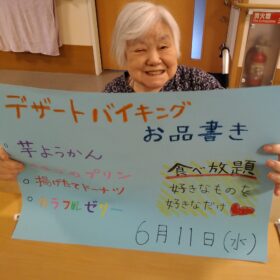 デザートバイキング
お品書き
。芋ようかん
プリン
。揚げたてドーナツ
。カラフルゼリー
食べ放題
好きなものを
好きなだけ
6月11日(水)